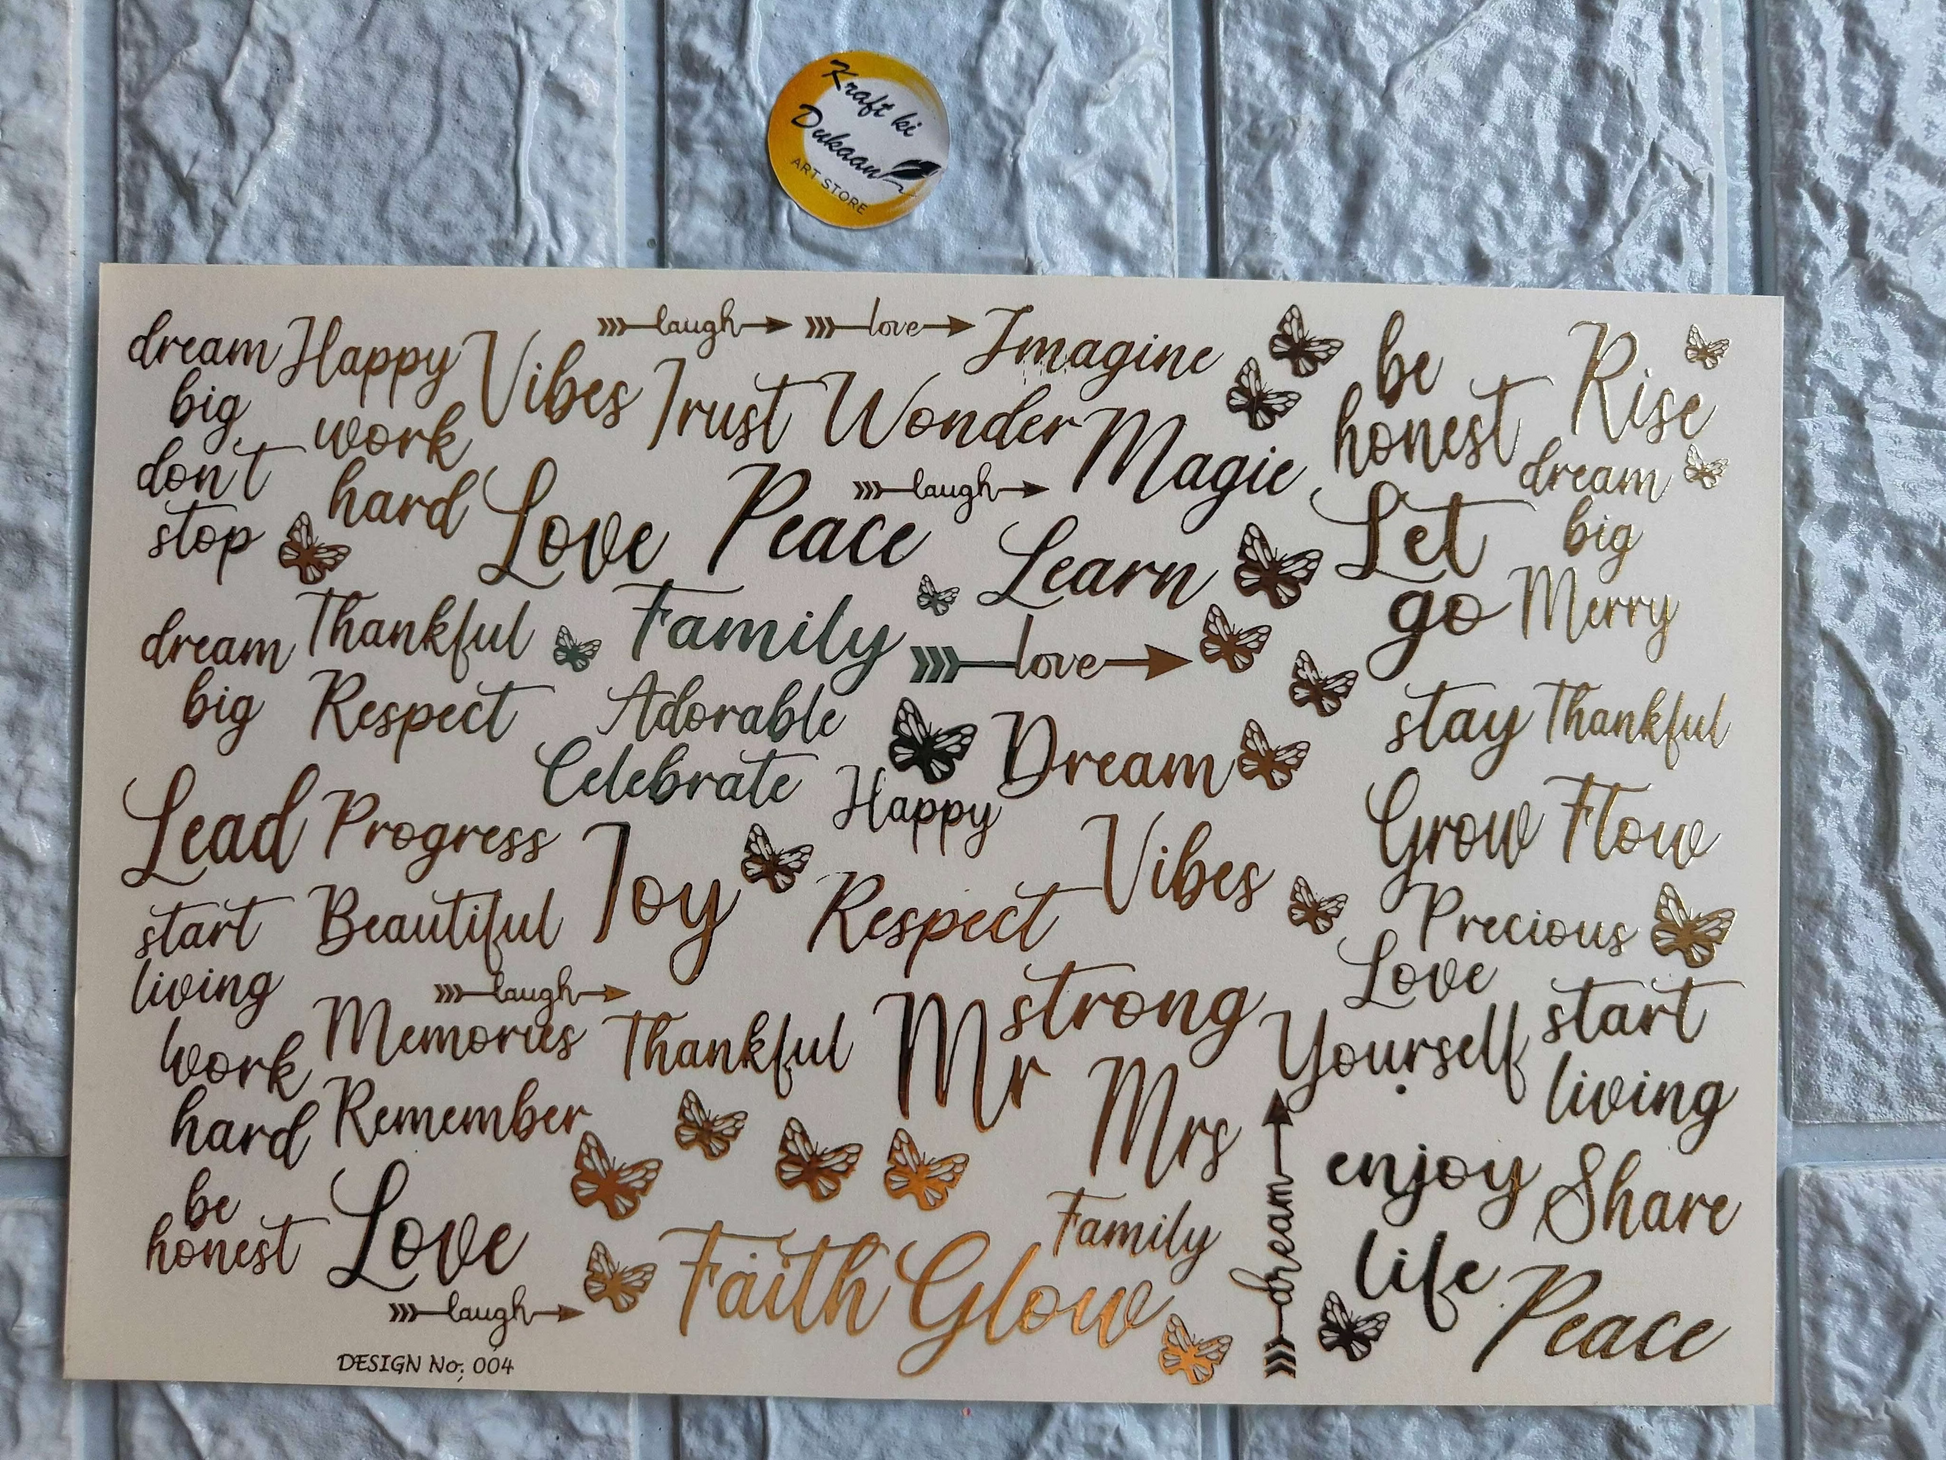 Kraft ki
Dukaan
ART STORE
dream
big
don't
stop
Happy
work
hard
Vibes
laugh
love
Imagine
Trust
Wonder
Magic
be
honest
Rise
dream
big
Love
Peace
laugh
Learn
Let
go
Merry
dream
big
Thankful
Respect
Family
love
Adorable
Celebrate
Happy
Dream
stay
Thankful
Lead
Progress
Joy
Respect
Vibes
Grow
Flow
Precious
start
living
Beautiful
laugh
Memories
Thankful
Mr
strong
Love
Yourself
start
living
work
hard
Remember
Mrs
dream
enjoy
life
Share
be
honest
Love
laugh
Faith
Glow
Family
Peace
DESIGN No; 004